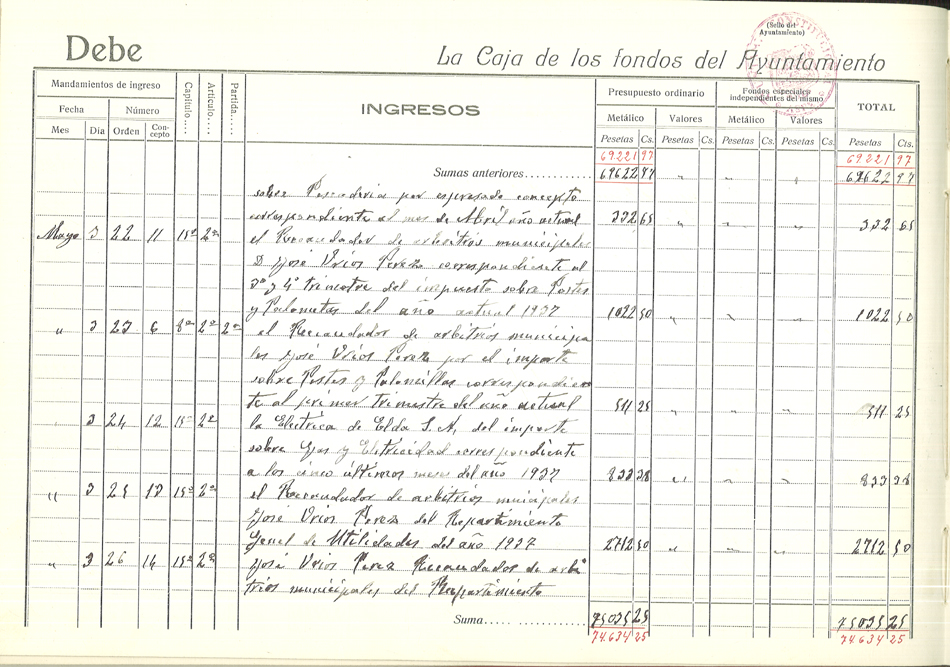 Debe
La Caja de los fondos del Ayuntamiento
(Sello del Ayuntamiento)
Mandamientos de ingreso Capítulo.... Artículo.... Partida..... INGRESOS Presupuesto ordinario Fondos especiales independientes del mismo TOTAL
Fecha Número Metálico Valores Metálico Valores
Mes Día Orden Concepto Pesetas Cs. Pesetas Cs. Pesetas Cs. Pesetas Cs. Pesetas Cts.
69221 97 69221 97
Sumas anteriores............ 69622 97 " " " 69622 97
sobre Pescaderia por espresado concepto
correspondiente al mes de Abril año actual 332 65 " " " 332 65
Mayo 3 22 11 15º 2º el Recaudador de arbitrios municipales
D José Vrios Perez correspondiente al
3º y 4º trimestre del impuesto sobre Postes
y Palometas del año actual 1937 1022 50 " " " 1022 50
" 3 23 6 8º 2º 2º el Recaudador de arbitrios municipa
les José Vrios Perez por el importe
sobre Postes y Palomillas correspondien
te al primer trimestre del año actual 511 25 " " " 511 25
" 3 24 12 15º 2º la Electrica de Elda S.A. del importe
sobre Gas y Eletricidad correspondiente
a los cinco últimos meses del año 1937 833 38 " " " 833 38
" 3 25 13 15º 2º el Recaudador de arbitrios municipales
José Vrios Perez del Repartimiento
Genel de Utilidades del año 1937 2712 50 " " " 2712 50
" 3 26 14 15º 2º José Vrios Perez Recaudador de arbi
trios municipales del Repartimiento
Suma..... ............ 75035 25 75035 25
74.634 25 74.634 25